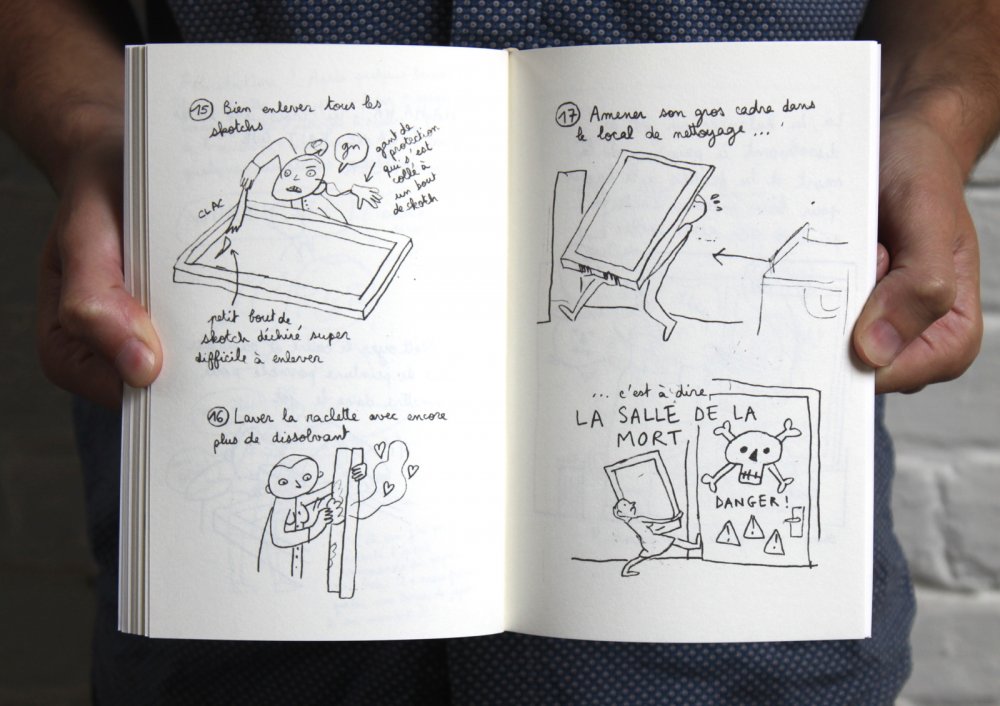 15 Bien enlever tous les
skotchs
gn
gant de
protection
qui s'est
collé à
un bout
de skotch
CLAC
petit bout de
skotch déchiré super
difficile à enlever
16 Laver la raclette avec encore
plus de dissolvant
17 Amener son gros cadre dans
le local de nettoyage...
... c'est à dire
LA SALLE DE LA
MORT
DANGER!
! ! !